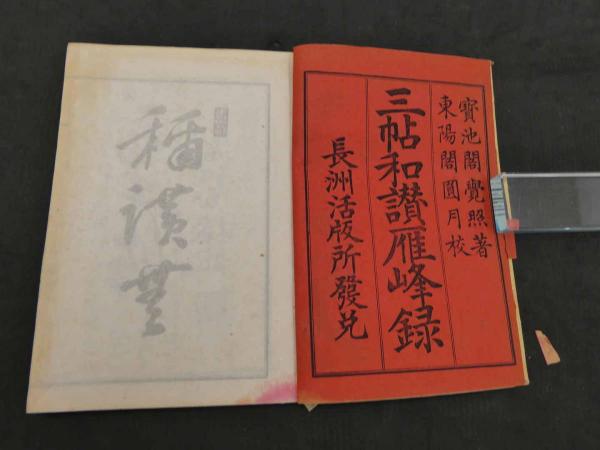 寳池閣覺照著
東陽閣圓月校
三帖和讃雁峰録
長洲活版所發兌